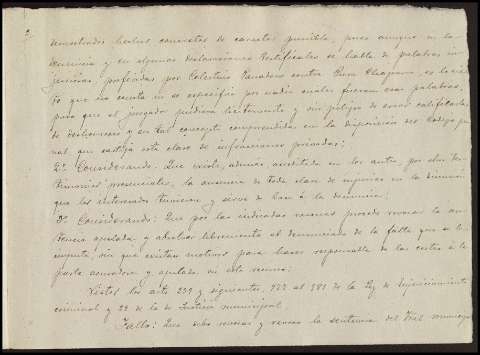 demostrados hechos concretos de caracter punible, pues aunque en la
denuncia y en algunas declaraciones testificales se habla de palabras in-
juriosas, proferidas por Celestino contra Pura, es lo cier-
to que no consta ni se especificó por nadie cuales fueran esas palabras,
para que el juzgador pudiera licitamente y sin peligro de error calificarlas
de deshonrosas y en tal concepto comprendidas en la disposicion del Codigo pe-
nal que castiga esta clase de infracciones privadas;
2º Considerando: Que existe, además, acreditado en los autos, por dos tes-
timonios presenciales, la ausencia de toda clase de injurias en la discusión
que los interesados tuvieron y sirve de base á la denuncia;
3º Considerando: Que por las indicadas razones procede revocar la sen-
tencia apelada y absolver libremente al denunciado de la falta que se le
imputa, sin que existan motivos para hacer responsable de las costas á la
parte acusadora y apelada en este recurso;
Vistos los arts 239 y siguientes, 972 al 981 de la Ley de Enjuiciamiento
criminal y 22 de la de Justicia municipal
Fallo: Que debo revocar y revoco la sentencia del Tribl municipal